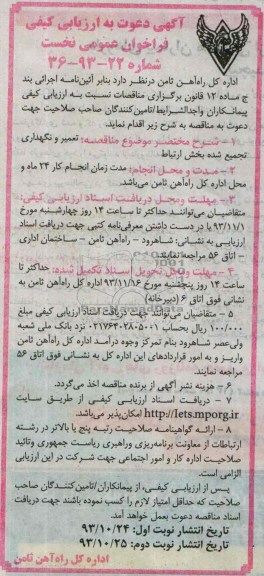 آگهی دعوت به ارزیابی کیفی
فراخوان عمومی نخست
شماره ۲۲-۹۳-۳۶
اداره کل راه‌آهن ثامن درنظر دارد بنابر آئین‌نامه اجرائی بند
ج ماده ۱۲ قانون برگزاری مناقصات نسبت به ارزیابی کیفی
پیمانکاران واجدالشرایط/تامین‌کنندگان صاحب صلاحیت جهت
دعوت به مناقصه به شرح زیر اقدام نماید.
۱ - شرح مختصر موضوع مناقصه: تعمیر و نگهداری
تجمیع شده بخش ارتباط
۲ - مدت و محل انجام: مدت زمان انجام کار ۲۴ ماه و
محل اداره کل راه‌آهن ثامن می‌باشد.
۳ - مهلت ومحل دریافت اسناد ارزیابی کیفی:
متقاضیان می‌توانند حداکثر تا ساعت ۱۴ روز چهارشنبه مورخ
۹۳/۱۱/۱ با در دست داشتن معرفی‌نامه کتبی جهت دریافت اسناد
ارزیابی به نشانی: شاهرود - راه‌آهن ثامن - ساختمان اداری
- اتاق ۵۶ مراجعه نمایند.
۴ - مهلت ومحل تحویل اسناد تکمیل شده: حداکثر تا
ساعت ۱۴ روز پنجشنبه مورخ ۹۳/۱۱/۱۶ اداره کل راه‌آهن ثامن به
نشانی فوق اتاق ۶ (دبیرخانه)
۵ - متقاضیان می‌توانند جهت دریافت اسناد ارزیابی کیفی مبلغ
۱۰۰/۰۰۰ ریال بحساب ۲۱۷۶۴۰۲۸۰۵۰۰۱ نزد بانک ملی شعبه
ولی‌عصر شاهرود بنام تمرکز وجوه درآمد اداره کل راه‌آهن ثامن
واریز و به امور قراردادهای این اداره کل به نشانی فوق اتاق ۵۶
مراجعه نمایند
۶ - هزینه نشر آگهی از برنده مناقصه اخذ می‌گردد.
۷ - دریافت اسناد ارزیابی کیفی از طریق سایت
http://Iets.mporg.ir امکان‌پذیر می‌باشد.
۸ - ارائه گواهینامه صلاحیت رتبه پنج یا بالاتر در رشته
ارتباطات از معاونت برنامه‌ریزی وراهبری ریاست جمهوری وتائید
صلاحیت اداره کار و امور اجتماعی جهت شرکت در این ارزیابی
الزامی است.
پس از ارزیابی کیفی، از پیمانکاران/تامین‌کنندگان صاحب
صلاحیت که حداقل امتیاز لازم را کسب نموده باشند جهت دریافت
اسناد مناقصه دعوت بعمل خواهد آمد.
تاریخ انتشار نوبت اول: ۹۳/۱۰/۲۴
تاریخ انتشار نوبت دوم: ۹۳/۱۰/۲۵
اداره کل راه‌آهن ثامن